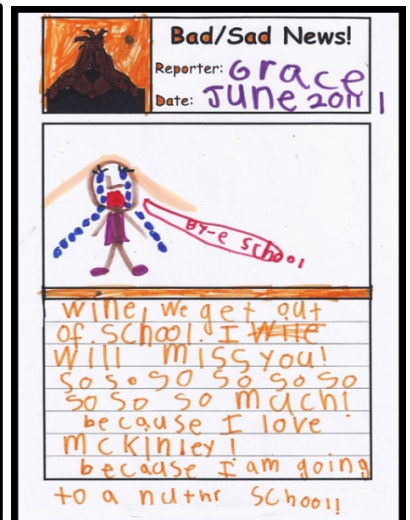 Bad/Sad News!
Reporter: Grace
Date: June 2011
BY-e school
wine, we get out
of school. I Wile
Will miss you!
So so so so so so
so so so much!
because I love
mckinley!
because I am going
to a nuthr school!